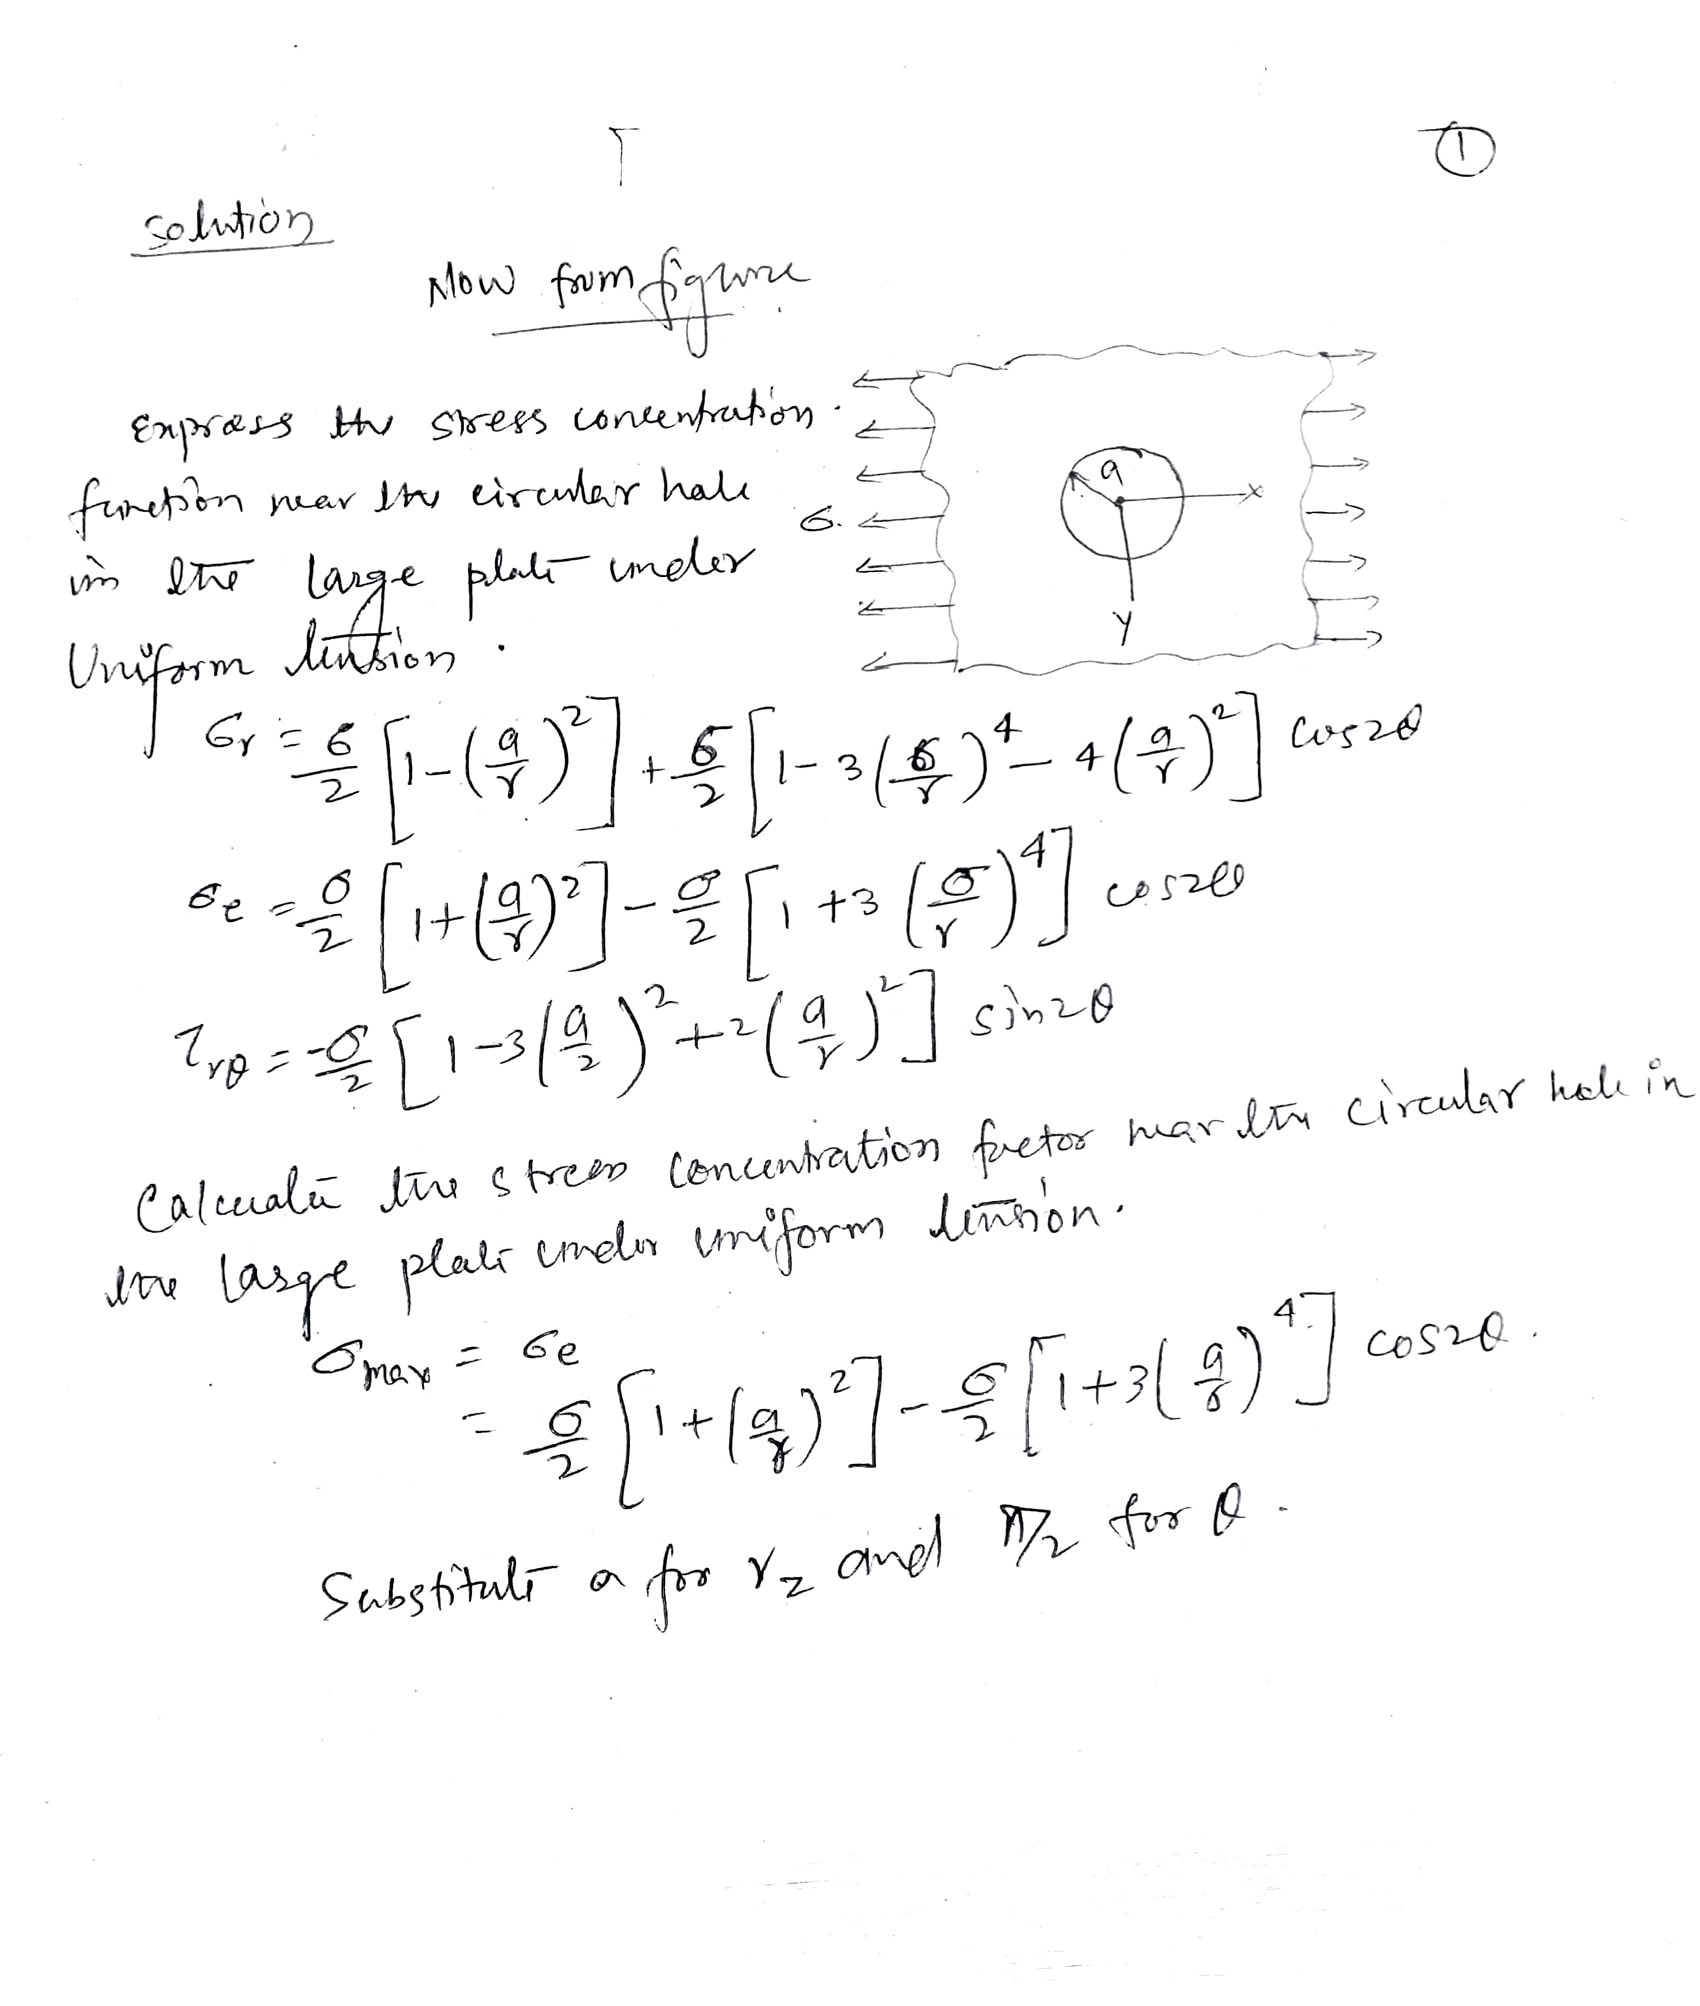 ①
Solution
Now from figure.
Express the stress concentration.
function near the circular hole
in the large plate under
Uniform tension.
a
x
σ.
y
σr = σ/2 [1-(a/r)^2] + σ/2 [1-3(σ/r)^4 - 4(a/r)^2] cos2θ
σe = σ/2 [1+(a/r)^2] - σ/2 [1+3(σ/r)^4] cos2θ
τrθ = -σ/2 [1-3(a/2)^2 + 2(a/r)^2] sin2θ
Calculate the stress concentration factor near the circular hole in
the large plate under uniform tension.
σmax = σe
= σ/2 [1+(a/r)^2] - σ/2 [1+3(a/r)^4] cos2θ.
Substitute a for rz and π/2 for θ.